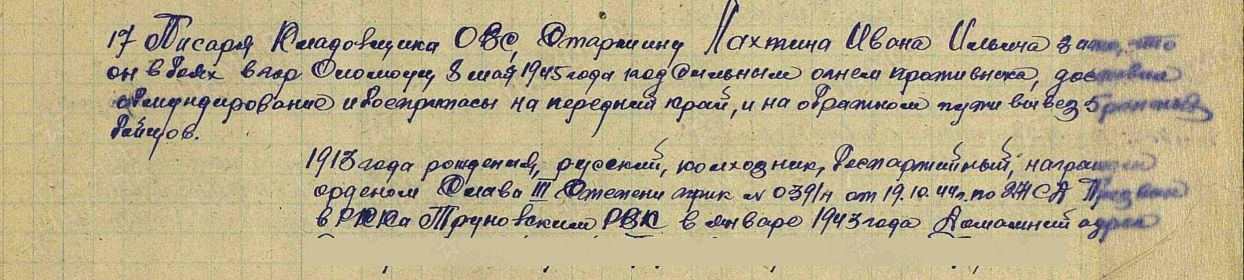 17 Писаря Кладовщика ОВС, Старшину Лахтина Ивана Ильича за то, что
он в боях в гор Оломоуц, 8 мая 1945 года под сильным огнем противника, доставил
обмундирование и боеприпасы на передний край, и на обратном пути вывез 5 раненых
бойцов.
1913 года рождения, русский, колхозник, беспартийный, награжден
орденом Слава III Степени прик № 039/н от 19.10.44г. по 24 СД Призван
в РККа Труновским РВК в январе 1943 года Домашний адрес